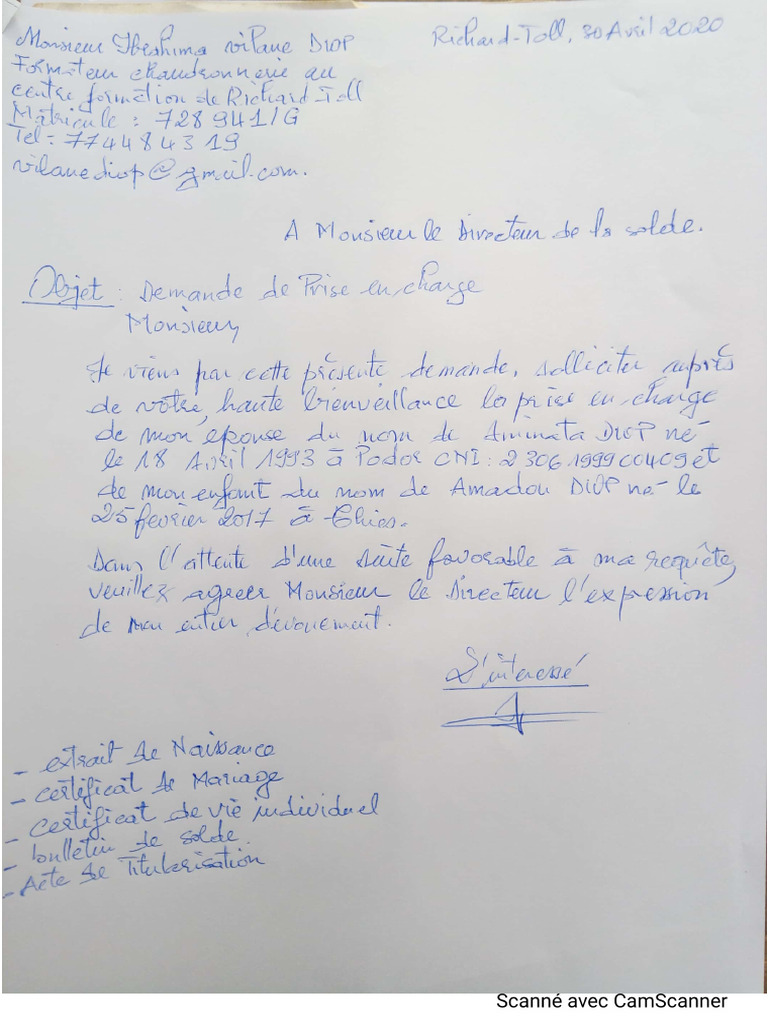 Monsieur Ibrahima vilane DIOP
Richard-Toll, 30 Avril 2020
Formateur chaudronnerie au
centre formation de Richard Toll
Matricule : 728 941/G
Tel : 77 448 43 19
vilanediop@gmail.com.
A Monsieur le Directeur de la solde.
Objet : Demande de Prise en charge
Monsieur,
Je viens par cette présente demande, solliciter auprès
de votre haute bienveillance la prise en charge
de mon épouse du nom de Aminata DIOP né
le 18 Avril 1993 à Podor CNI : 2 306 1999 00409 et
de mon enfant du nom de Amadou DIOP né le
25 fevrier 2017 à Thies.
Dans l'attente d'une suite favorable à ma requête,
veuillez agreer Monsieur le Directeur l'expression
de mon entier dévouement.
L'interessé
- extrait de Naissance
- certificat de Mariage
- certificat de vie individuel
- bulletin de solde
- Acte de Titularisation
Scanné avec CamScanner